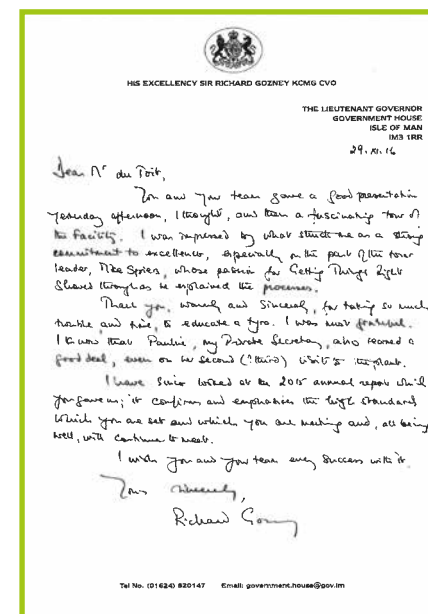 HIS EXCELLENCY SIR RICHARD GOZNEY KCMG CVO
THE LIEUTENANT GOVERNOR
GOVERNMENT HOUSE
ISLE OF MAN
IM3 1RR
29.xi.16
Dear Mr du Toit,
You and your team gave a good presentation
yesterday afternoon, I thought, and then a fascinating tour of
the facility. I was impressed by what struck me as a strong
commitment to excellence, especially on the part of the tour
leader, Mike Spiers, whose passion for Getting Things Right
shined through as he explained the processes.
Thank you, warmly and sincerely, for taking so much
trouble and time, to educate a tyro. I was most grateful.
I know that Pauline, my Private Secretary, also learned a
good deal, even on her second (? third) visit to the plant.
I have since looked at the 2015 annual report which
you gave us; it confirms and emphasises the high standards
which you are set and which you are meeting and, all being
well, will continue to meet.
I wish you and your team every success with it.
Yours sincerely,
Richard Gozney
Tel No. (01624) 620147 Email: government.house@gov.im